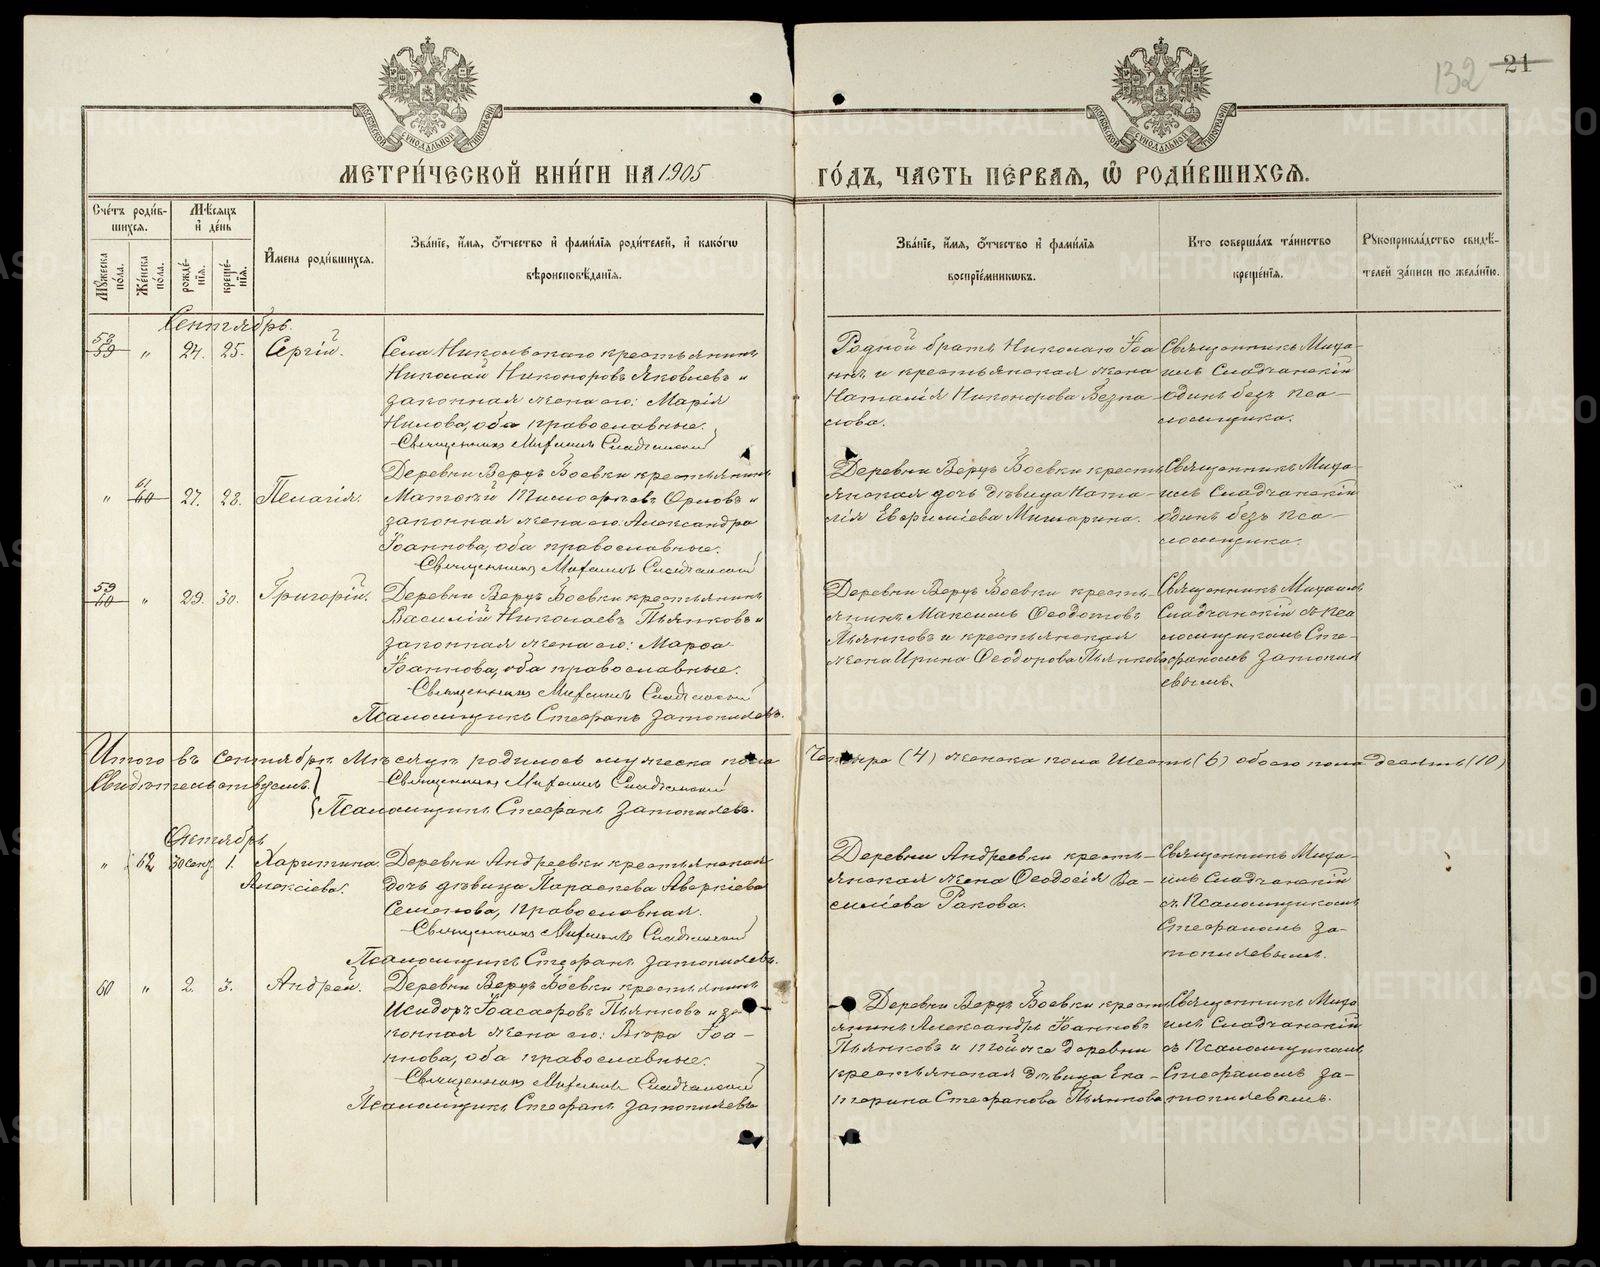 132 21
МЕТРИ́ЧЕСКОЙ КНИ́ГИ НА 1905 ГО́ДЪ, ЧАСТЬ ПЕ́РВАЯ, Ѡ҆ РОДИ́ВШИХСЯ.
Сче́тъ роди́вшихся.
Му́жеска по́ла.
Же́нска по́ла.
Мѣ́сяцъ и҆ де́нь
рожде́нїя.
креще́нїя.
И҆мена роди́вшихся.
Зва́нїе, и҆́мя, ѻ҆́тчество и҆ фами́лїя роди́телей, и҆ како́гѡ
вѣроисповѣ́данїя.
Зва́нїе, и҆́мя, ѻ҆́тчество и҆ фами́лїя
воспрїе́мникѡвъ.
Кто̀ соверша́лъ та́инство
креще́нїя.
Рꙋкоприкла́дство свидѣ́-
телей за́писи по жела́нїю.
Сентябрь.
58 59 „ 24. 25. Сергій.
Села Никольскаго крестьянинъ
Николай Никоноровъ Яковлевъ и
законная жена его: Марія
Нилова, оба православные.
Священникъ Михаилъ Сладчанскій
Родной братъ Николаю Іоа
ннъ и крестьянская жена
Наталія Никонорова Безпа
лова.
Священникъ Миха-
илъ Сладчанскій
одинъ безъ пса-
ломщика.
„ 61 60 27. 28. Пелагія.
Деревни Верхъ Боевки крестьянинъ
Матѳей Тимоѳеевъ Орловъ и
законная жена его Александра
Іоаннова, оба православные.
Священникъ Михаилъ Сладчанскій
Деревни Верхъ Боевки кресть
янская дочь дѣвица Ната-
лія Евфиміева Мишарина.
Священникъ Миха-
илъ Сладчанскій
одинъ безъ пса-
ломщика.
59 60 „ 29. 30. Григорій.
Деревни Верхъ Боевки крестьянинъ
Василій Николаевъ Пьянковъ и
законная жена его: Марѳа
Іоаннова, оба православные.
Священникъ Михаилъ Сладчанскій
Псаломщикъ Стефанъ Затопляевъ.
Деревни Верхъ Боевки кресть-
янинъ Максимъ Ѳеодотовъ
Пьянковъ и крестьянская
жена Ирина Ѳеодорова Пьянкова
Священникъ Михаилъ
Сладчанскій съ пса
ломщикомъ Сте-
фаномъ Затопля
евымъ.
Итого въ Сентябрѣ Мѣсяцѣ родилось мужеска пола Четыре (4) женска пола Шесть (6) обоего пола десять (10)
Свидѣтельствуемъ:
Священникъ Михаилъ Сладчанскій
Псаломщикъ Стефанъ Затопляевъ.
Октябрь
„ 62 30 сент. 1. Харитина
Алексіева.
Деревни Андреевки крестьянская
дочь дѣвица Параскева Аверкіева
Семенова, православная.
Священникъ Михаилъ Сладчанскій
Псаломщикъ Стефанъ Затопляевъ.
Деревни Андреевки кресть-
янская жена Ѳеодосія Ва-
силіева Ракова.
Священникъ Миха-
илъ Сладчанскій
съ Псаломщикомъ
Стефаномъ За-
топляевымъ.
60 „ 2. 3. Андрей.
Деревни Верхъ Боевки крестьянинъ
Исидоръ Іоасафовъ Пьянковъ и за
конная жена его: Вѣра Іоа-
ннова, оба православные.
Священникъ Михаилъ Сладчанскій
Псаломщикъ Стефанъ Затопляевъ
Деревни Верхъ Боевки кресть
янинъ Александръ Іоанновъ
Пьянковъ и той же деревни
крестьянская дѣвица Ека-
терина Стефанова Пьянкова
Священникъ Миха
илъ Сладчанскій
съ Псаломщикомъ
Стефаномъ За-
топляевымъ.
METRIKI.GASO-URAL.RU